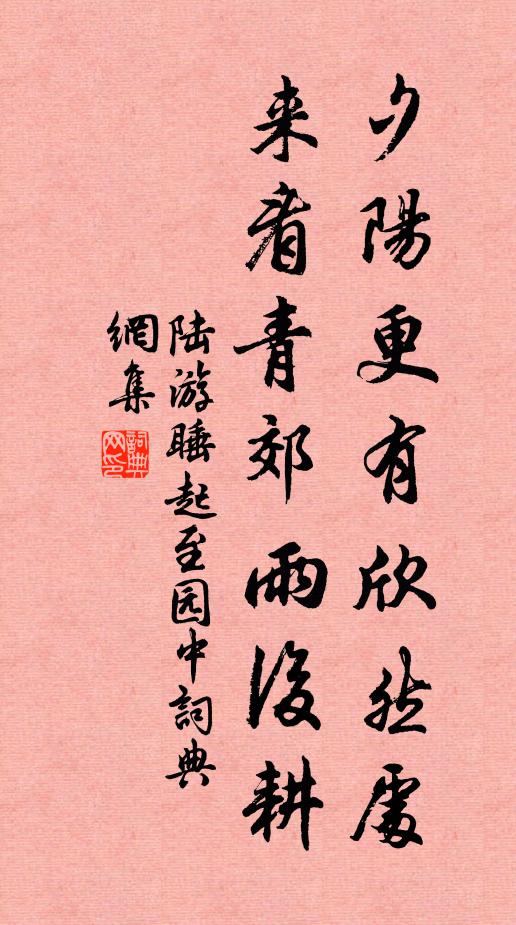 夕陽更有欣然處
来看青郊雨後耕
陆游睡起至园中詞典
網集
詞典网印